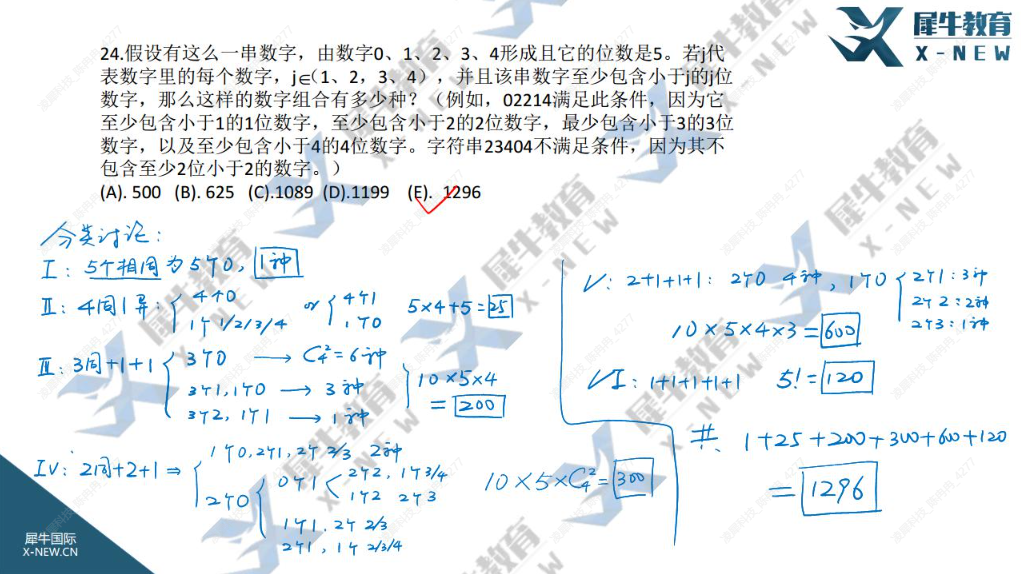 犀牛教育
X-NEW
24.假设有这么一串数字，由数字0、1、2、3、4形成且它的位数是5。若j代
表数字里的每个数字，j∈（1、2，3、4），并且该串数字至少包含小于j的j位
数字，那么这样的数字组合有多少种？（例如，02214满足此条件，因为它
至少包含小于1的1位数字，至少包含小于2的2位数字，最少包含小于3的3位
数字，以及至少包含小于4的4位数字。字符串23404不满足条件，因为其不
包含至少2位小于2的数字。）
(A). 500 (B). 625 (C).1089 (D).1199 (E). 1296
分类讨论：
I：5个相同为5个0，1种
II：4同1异：4个0
1个1/2/3/4
or
4个1
1个0
5×4+5=25
III：3同+1+1
3个0 → C₄²=6种
3个1，1个0 → 3种
3个2，1个1 → 1种
10×5×4
=200
IV：2同+2+1 ⇒
1个0，2个1，2个2/3 2种
2个0
0个1
2个2，1个3/4
1个2 2个3
1个1，2个2/3
2个1，1个2/3/4
10×5×C₄²=300
V：2+1+1+1：2个0 4种，1个0
2个1：3种
2个2：2种
2个3：1种
10×5×4×3=600
VI：1+1+1+1+1 5!=120
共 1+25+200+300+600+120
=1296
犀牛国际
X-NEW.CN